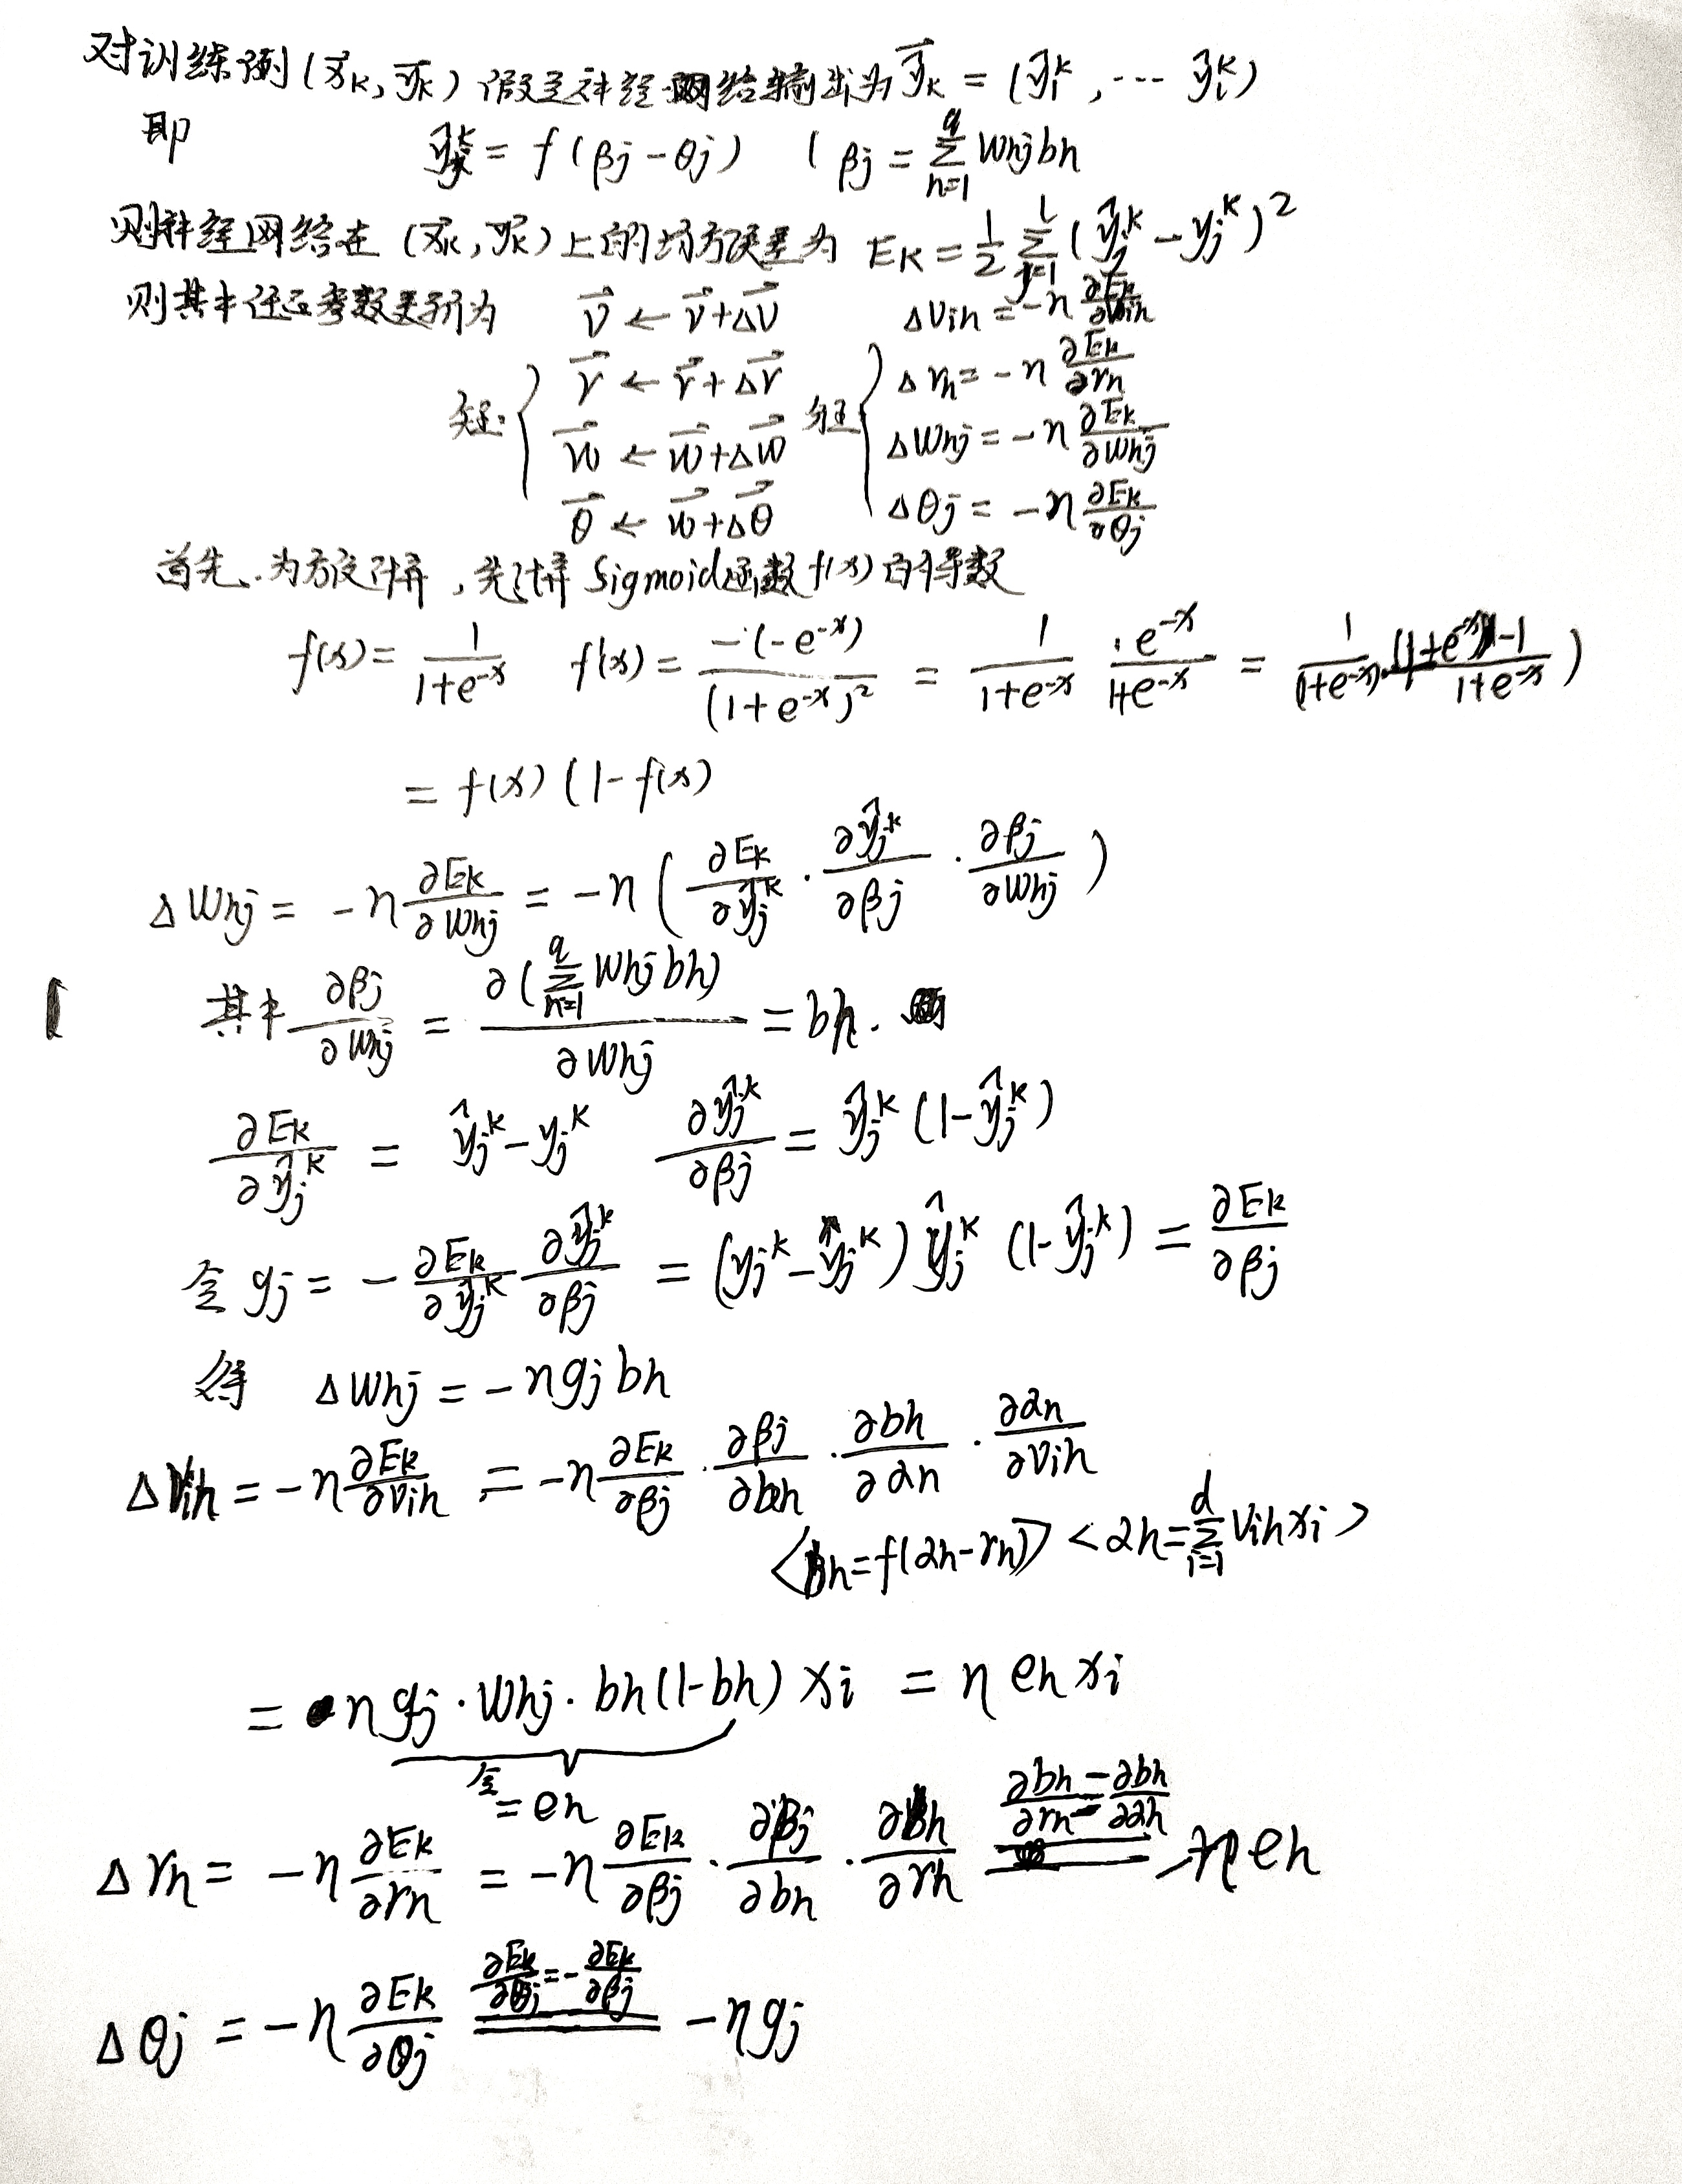 对训练例(x⃗k, y⃗k) 假定神经网络输出为 ŷ⃗k = (ŷ₁ᵏ, ⋯ ŷₗᵏ)
即 ŷⱼᵏ = f(βj-θj) ( βj = ∑_{h=1}^{q} Whj bh
则神经网络在 (x⃗k, y⃗k) 上的均方误差为 Ek = 1/2 ∑_{j=1}^{l} (ŷⱼᵏ - yⱼᵏ)²
则其中任意参数更新为 v⃗ ← v⃗+Δv⃗ ΔVih = -η ∂Ek/∂Vih
r⃗ ← r⃗+Δr⃗ Δrh = -η ∂Ek/∂rh
w⃗ ← w⃗+Δw⃗ ΔWhj = -η ∂Ek/∂Whj
θ⃗ ← w⃗+Δθ⃗ Δθj = -η ∂Ek/∂θj
首先、为方便计算,先计算 Sigmoid函数 f(x) 的导数
f(x) = 1/(1+e^{-x}) f'(x) = -(-e^{-x})/(1+e^{-x})² = 1/(1+e^{-x}) · e^{-x}/(1+e^{-x}) = 1/(1+e^{-x}) · ((1+e^{-x})-1)/(1+e^{-x}) )
= f(x) (1-f(x)
ΔWhj = -η ∂Ek/∂Whj = -η ( ∂Ek/∂ŷⱼᵏ · ∂ŷⱼᵏ/∂βj · ∂βj/∂Whj )
其中 ∂βj/∂Whj = ∂(∑_{h=1}^{q} Whj bh)/∂Whj = bh.
∂Ek/∂ŷⱼᵏ = ŷⱼᵏ - yⱼᵏ ∂ŷⱼᵏ/∂βj = ŷⱼᵏ (1-ŷⱼᵏ)
令 gj = - ∂Ek/∂ŷⱼᵏ ∂ŷⱼᵏ/∂βj = (yⱼᵏ - ŷⱼᵏ) ŷⱼᵏ (1-ŷⱼᵏ) = ∂Ek/∂βj
得 ΔWhj = -η gj bh
ΔVih = -η ∂Ek/∂Vih = -η ∂Ek/∂βj · ∂βj/∂bh · ∂bh/∂αh · ∂αh/∂Vih
<bh = f(αh-rh)> <αh = ∑_{i=1}^{d} Vih xi>
= η gj · Whj · bh(1-bh) xi = η eh xi
令 = eh
∂bh/∂rh = -∂bh/∂αh
Δrh = -η ∂Ek/∂rh = -η ∂Ek/∂βj · ∂βj/∂bh · ∂bh/∂rh = -η eh
∂Ek/∂θj = -∂Ek/∂βj
Δθj = -η ∂Ek/∂θj = -η gj